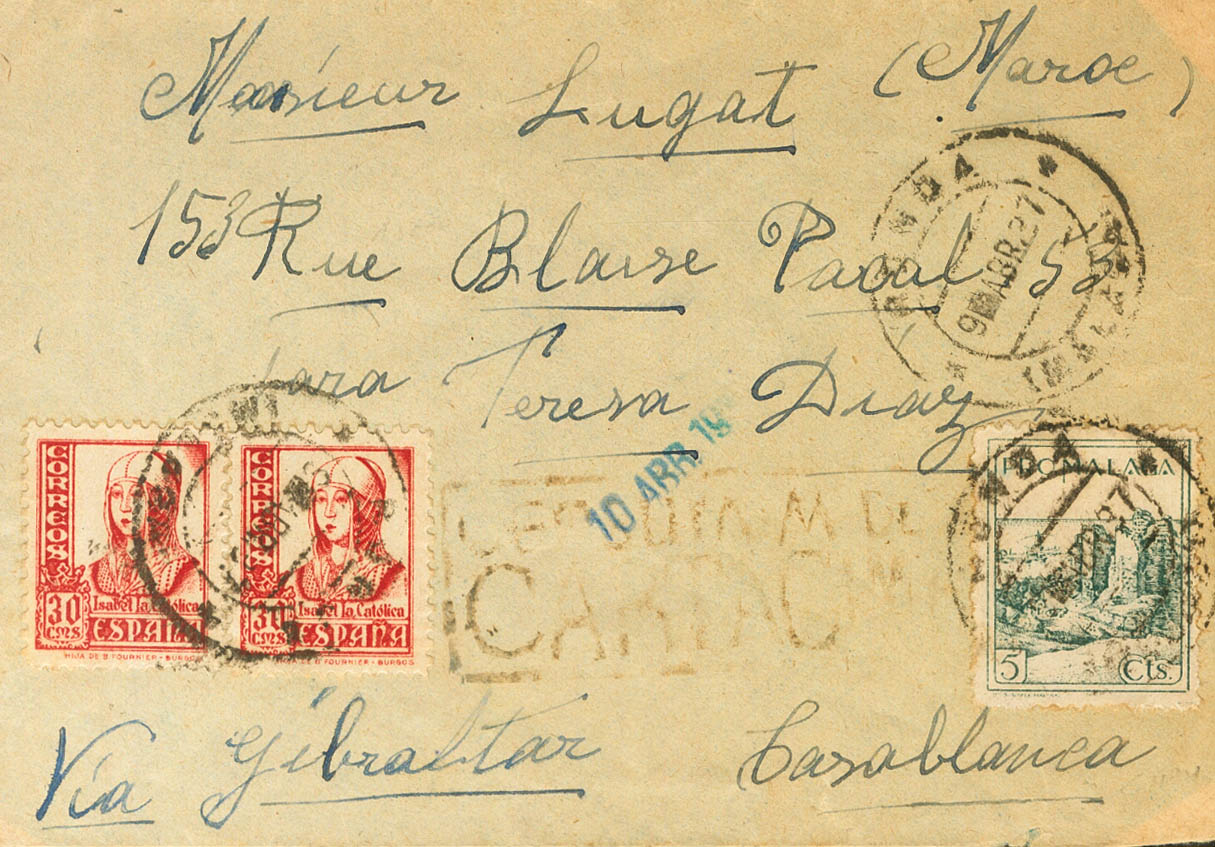 Monsieur Lugat (Maroc)
153 Rue Blaise Pacal 53
Para Teresa Diaz
RONDA * (MALAGA) *
9 ABR.37
10 ABR. 19
CORREOS
30 CMS
Isabel la Católica
ESPAÑA
HIJA DE B. FOURNIER - BURGOS
CORREOS
30 CMS
Isabel la Católica
ESPAÑA
HIJA DE B. FOURNIER - BURGOS
PRO MALAGA
5 Cts.
RONDA
Via Gibraltar Casablanca